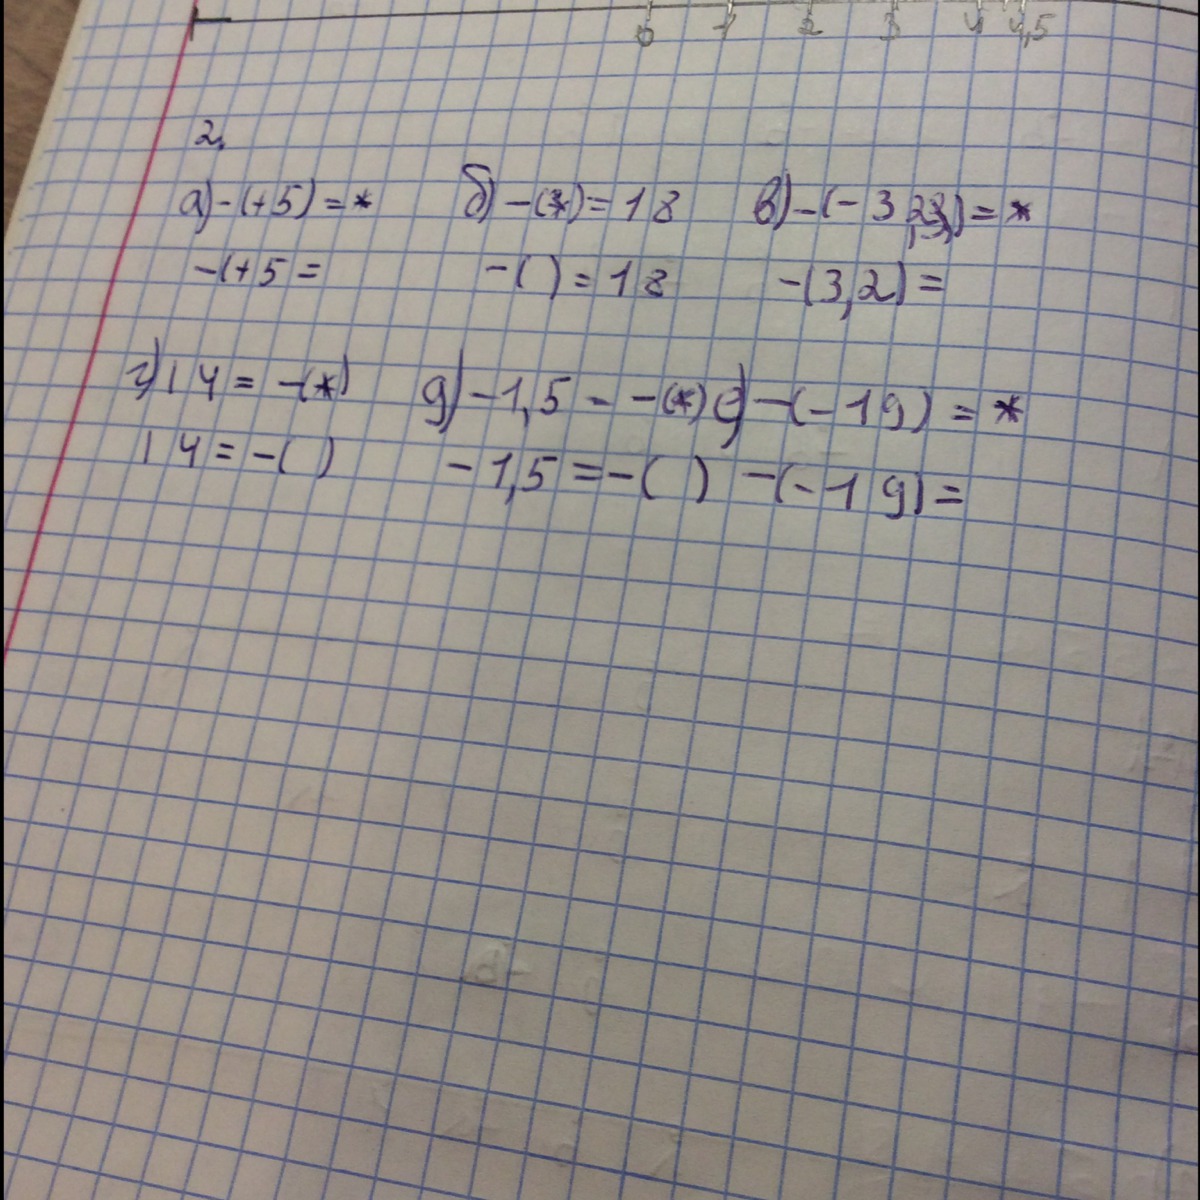 0 1 2 3 4 4,5
2.
а) -(+5) = * б) -(*) = 18 в) -(-3,2) = *
-(+5 = -( ) = 18 -(3,2) =
г) 14 = -(*) д) -1,5 - -(*) е) -(-19) = *
14 = -( ) -1,5 = -( ) -(-19) =